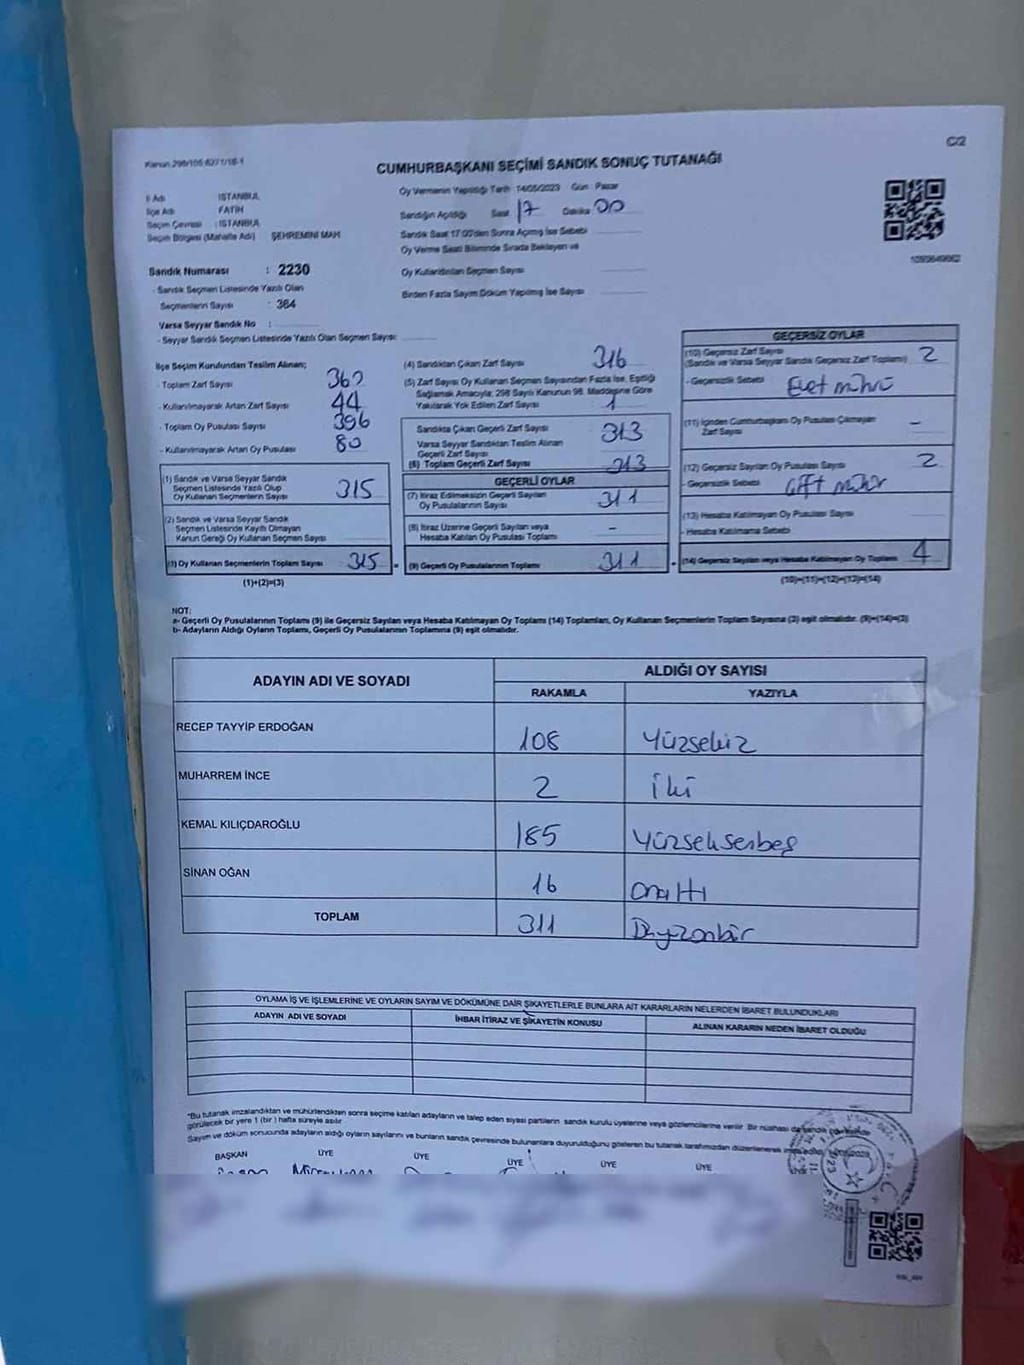 Kanun 298/105 6271/18-1
C/2
CUMHURBAŞKANI SEÇİMİ SANDIK SONUÇ TUTANAĞI
İl Adı İSTANBUL
İlçe Adı FATİH
Seçim Çevresi : İSTANBUL
Seçim Bölgesi (Mahalle Adı) ŞEHREMİNİ MAH.
Oy Vermenin Yapıldığı Tarih 14/05/2023 Gün Pazar
Sandığın Açıldığı Saat 17 Dakika 00
Sandık Saat 17:00'den Sonra Açılmış İse Sebebi
Oy Verme Saati Bitiminde Sırada Bekleyen ve
Oy Kullandırılan Seçmen Sayısı
Birden Fazla Sayım Döküm Yapılmış İse Sayısı
Sandık Numarası : 2230
- Sandık Seçmen Listesinde Yazılı Olan
Seçmenlerin Sayısı : 364
Varsa Seyyar Sandık No :
- Seyyar Sandık Seçmen Listesinde Yazılı Olan Seçmen Sayısı
İlçe Seçim Kurulundan Teslim Alınan;
- Toplam Zarf Sayısı 360
- Kullanılmayarak Artan Zarf Sayısı 44
- Toplam Oy Pusulası Sayısı 396
- Kullanılmayarak Artan Oy Pusulası 80
(1) Sandık ve Varsa Seyyar Sandık
Seçmen Listesinde Yazılı Olup
Oy Kullanan Seçmenlerin Sayısı 315
(2) Sandık ve Varsa Seyyar Sandık
Seçmen Listesinde Kayıtlı Olmayan
Kanun Gereği Oy Kullanan Seçmen Sayısı
(3) Oy Kullanan Seçmenlerin Toplam Sayısı 315
(1)+(2)=(3)
(4) Sandıktan Çıkan Zarf Sayısı 316
(5) Zarf Sayısı Oy Kullanan Seçmen Sayısından Fazla İse, Eşitliği
Sağlamak Amacıyla, 298 Sayılı Kanunun 98. Maddesine Göre
Yakılarak Yok Edilen Zarf Sayısı 1
Sandıkta Çıkan Geçerli Zarf Sayısı 313
Varsa Seyyar Sandıktan Teslim Alınan
Geçerli Zarf Sayısı
(6) Toplam Geçerli Zarf Sayısı 313
GEÇERLİ OYLAR
(7) İtiraz Edilmeksizin Geçerli Sayılan
Oy Pusulalarının Sayısı 311
(8) İtiraz Üzerine Geçerli Sayılan veya
Hesaba Katılan Oy Pusulası Toplamı –
(9) Geçerli Oy Pusulalarının Toplamı 311
GEÇERSİZ OYLAR
(10) Geçersiz Zarf Sayısı
(Sandık ve Varsa Seyyar Sandık Geçersiz Zarf Toplamı) 2
- Geçersizlik Sebebi Evet mührü
(11) İçinden Cumhurbaşkanı Oy Pusulası Çıkmayan
Zarf Sayısı –
(12) Geçersiz Sayılan Oy Pusulası Sayısı 2
- Geçersizlik Sebebi Çift mühür
(13) Hesaba Katılmayan Oy Pusulası Sayısı
- Hesaba Katılmama Sebebi
(14) Geçersiz Sayılan veya Hesaba Katılmayan Oy Toplamı 4
(10)+(11)+(12)+(13)=(14)
NOT:
a- Geçerli Oy Pusulalarının Toplamı (9) ile Geçersiz Sayılan veya Hesaba Katılmayan Oy Toplamı (14) Toplamları, Oy Kullanan Seçmenlerin Toplam Sayısına (3) eşit olmalıdır. (9)+(14)=(3)
b- Adayların Aldığı Oyların Toplamı, Geçerli Oy Pusulalarının Toplamına (9) eşit olmalıdır.
ADAYIN ADI VE SOYADI ALDIĞI OY SAYISI
RAKAMLA YAZIYLA
RECEP TAYYİP ERDOĞAN 108 Yüzsekiz
MUHARREM İNCE 2 İki
KEMAL KILIÇDAROĞLU 185 Yüzseksenbeş
SİNAN OĞAN 16 Onaltı
TOPLAM 311 Üçyüzonbir
OYLAMA İŞ VE İŞLEMLERİNE VE OYLARIN SAYIM VE DÖKÜMÜNE DAİR ŞİKAYETLERLE BUNLARA AİT KARARLARIN NELERDEN İBARET BULUNDUKLARI
ADAYIN ADI VE SOYADI İHBAR İTİRAZ VE ŞİKAYETİN KONUSU ALINAN KARARIN NEDEN İBARET OLDUĞU
"Bu tutanak imzalandıktan ve mühürlendikten sonra seçime katılan adayların ve talep eden siyasi partilerin sandık kurulu üyelerine veya gözlemcilerine verilir. Bir nüshası da sandık
görülecek bir yere 1 (bir) hafta süreyle asılır
Sayım ve döküm sonucunda adayların aldığı oyların sayılarını ve bunların sandık çevresinde bulunanlara duyurulduğunu gösteren bu tutanak tarafımızdan düzenlenerek
BAŞKAN ÜYE ÜYE ÜYE ÜYE ÜYE